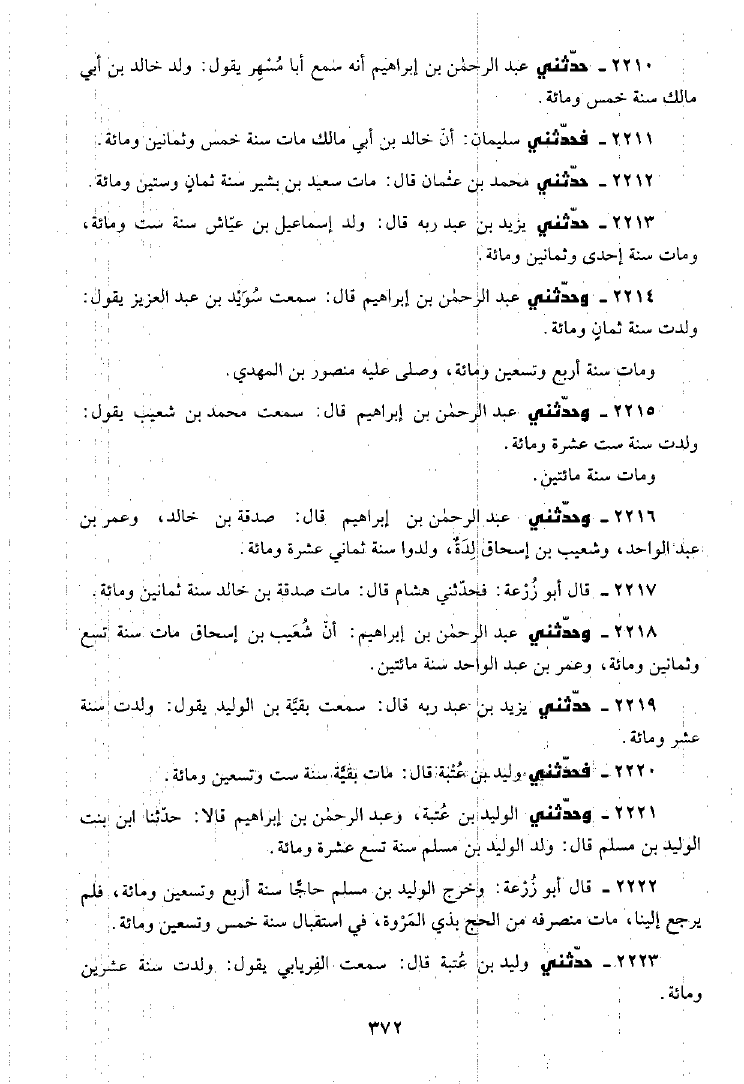 ٢٢١٠ ـ حدّثني عبد الرحمٰن بن إبراهيم أنه سمع أبا مُسْهِر يقول: ولد خالد بن أبي
مالك سنة خمس ومائة.
٢٢١١ ـ فحدّثني سليمان: أنّ خالد بن أبي مالك مات سنة خمس وثمانين ومائة.
٢٢١٢ ـ حدّثني محمد بن عثمان قال: مات سعيد بن بشير سنة ثمانٍ وستين ومائة.
٢٢١٣ ـ حدّثني يزيد بن عبد ربه قال: ولد إسماعيل بن عيّاش سنة ست ومائة،
ومات سنة إحدى وثمانين ومائة.
٢٢١٤ ـ وحدّثني عبد الرحمٰن بن إبراهيم قال: سمعت سُوَيْد بن عبد العزيز يقول:
ولدت سنة ثمانٍ ومائة.
ومات سنة أربع وتسعين ومائة، وصلى عليه منصور بن المهدي.
٢٢١٥ ـ وحدّثني عبد الرحمٰن بن إبراهيم قال: سمعت محمد بن شعيب يقول:
ولدت سنة ست عشرة ومائة.
ومات سنة مائتين.
٢٢١٦ ـ وحدّثني عبد الرحمٰن بن إبراهيم قال: صدقة بن خالد، وعمر بن
عبد الواحد، وشعيب بن إسحاق لِدَةٌ، ولدوا سنة ثماني عشرة ومائة.
٢٢١٧ ـ قال أبو زُرْعة: فحدّثني هشام قال: مات صدقة بن خالد سنة ثمانين ومائة.
٢٢١٨ ـ وحدّثني عبد الرحمٰن بن إبراهيم: أنّ شُعَيب بن إسحاق مات سنة تسع
وثمانين ومائة، وعمر بن عبد الواحد سنة مائتين.
٢٢١٩ ـ حدّثني يزيد بن عبد ربه قال: سمعت بقيَّة بن الوليد يقول: ولدت سنة
عشر ومائة.
٢٢٢٠ ـ فحدّثني وليد بن عُتْبة قال: مات بقيَّة سنة ست وتسعين ومائة.
٢٢٢١ ـ وحدّثني الوليد بن عُتبة، وعبد الرحمٰن بن إبراهيم قالا: حدّثنا ابن بنت
الوليد بن مسلم قال: ولد الوليد بن مسلم سنة تسع عشرة ومائة.
٢٢٢٢ ـ قال أبو زُرْعة: وخرج الوليد بن مسلم حاجًّا سنة أربع وتسعين ومائة، فلم
يرجع إلينا، مات منصرفه من الحج بذي المَرْوة، في استقبال سنة خمس وتسعين ومائة.
٢٢٢٣ ـ حدّثني وليد بن عُتبة قال: سمعت الفِريابي يقول: ولدت سنة عشرين
ومائة.
٣٧٢